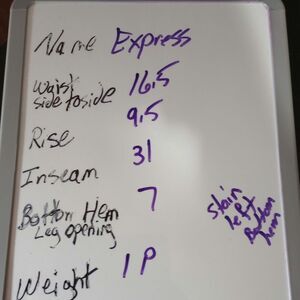 Name Express
Waist 16.5
side to side
9.5
Rise
31
Inseam
7
Bottom Hem
Leg opening
Stain
left
Bottom
hem
1P
Weight